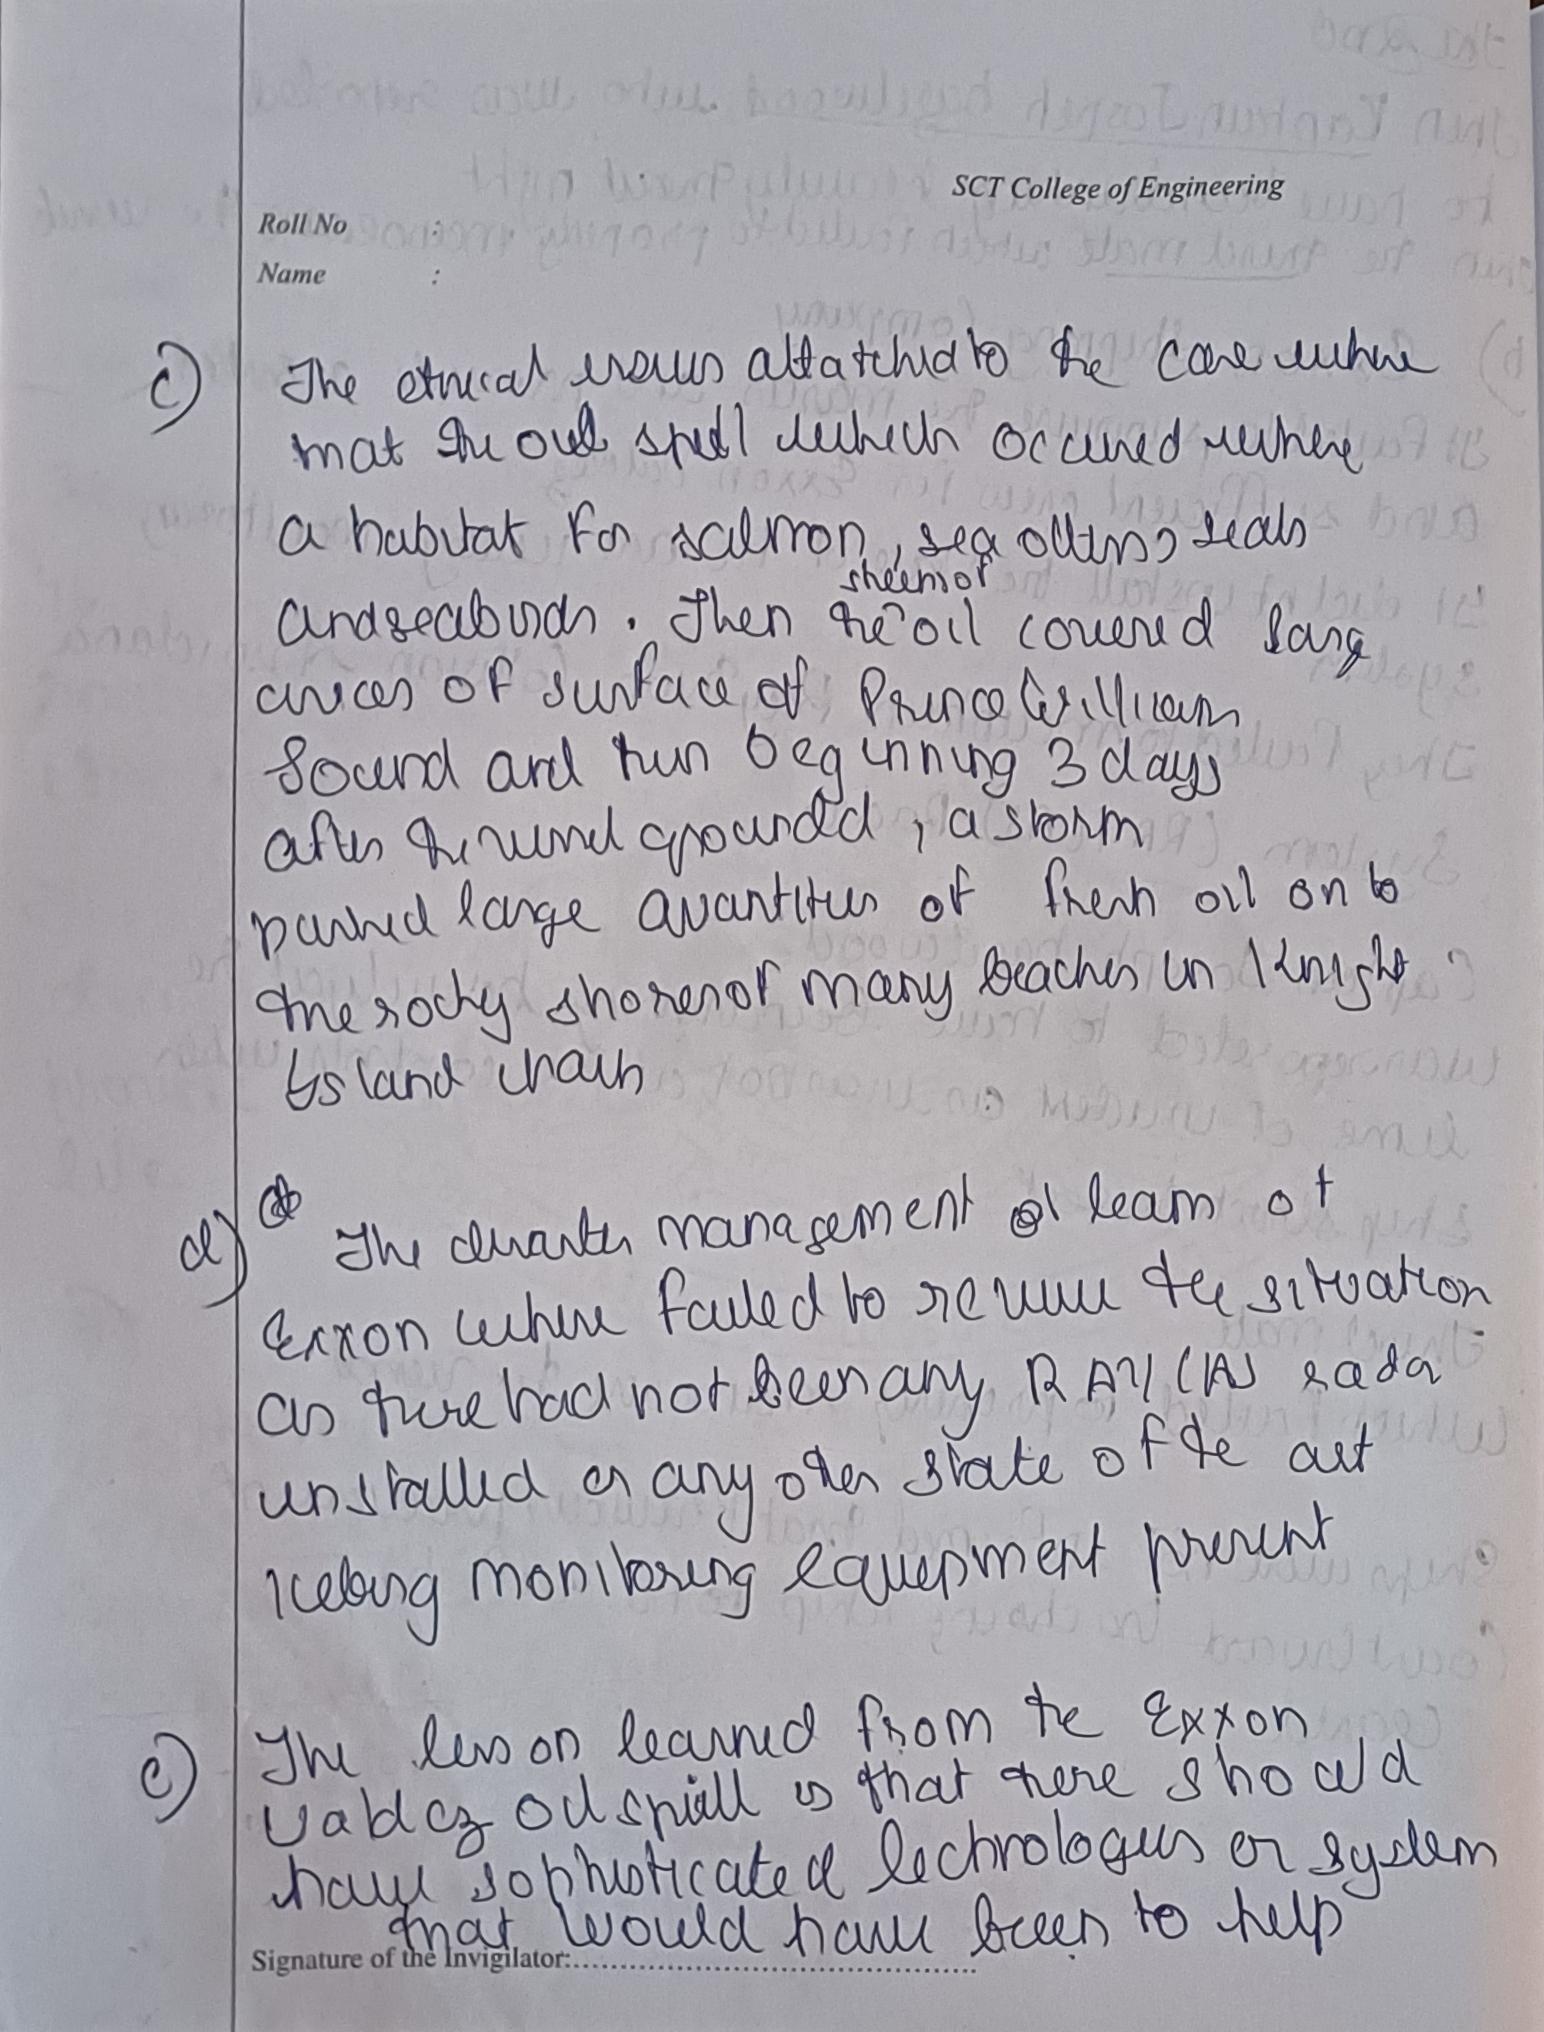 SCT College of Engineering
Roll No :
Name :
c) The ethical issues attatched to the case where
that the oil spill which occured where
a habitat for salmon, sea otters, seals
and seabirds. Then the sheen of oil covered larg
areas of surface of Prince William
Sound and then beginning 3 days
after the vessel grounded, a storm
pushed large quantities of fresh oil on to
the rocky shores of many beaches in Knight
Island chain
d) The disaster management team of
Exxon where failed to review the situation
as there had not been any RAYCAS radar
installed or any other state of the art
iceberg monitoring equipment present
e) The lesson learned from the Exxon
Valdez oil spill is that there should
have sophisticated technologies or system
that would have been to help
Signature of the Invigilator: